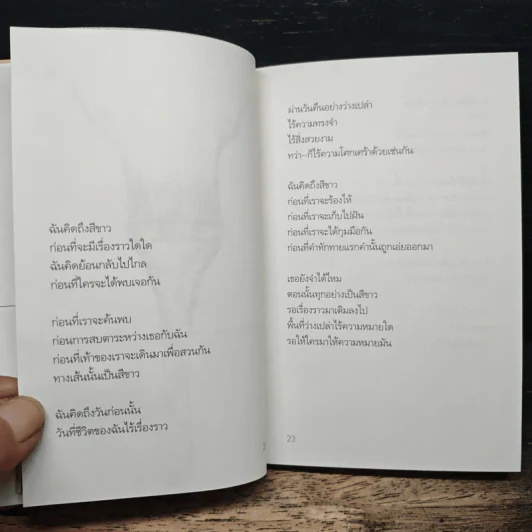 ฉันคิดถึงสีขาว
ก่อนที่จะมีเรื่องราวใดใด
ฉันคิดย้อนกลับไปไกล
ก่อนที่ใครจะได้พบเจอกัน
ก่อนที่เราจะค้นพบ
ก่อนการสบตาระหว่างเธอกับฉัน
ก่อนที่เท้าของเราจะเดินมาเพื่อสวนกัน
ทางเส้นนั้นเป็นสีขาว
ฉันคิดถึงวันก่อนนั้น
วันที่ชีวิตของฉันไร้เรื่องราว
ผ่านวันคืนอย่างว่างเปล่า
ไร้ความทรงจำ
ไร้สิ่งสวยงาม
ทว่า--ก็ไร้ความโศกเศร้าด้วยเช่นกัน
ฉันคิดถึงสีขาว
ก่อนที่เราจะร้องไห้
ก่อนที่เราจะเก็บไปฝัน
ก่อนที่เราจะได้กุมมือกัน
ก่อนที่คำทักทายแรกคำนั้นถูกเอ่ยออกมา
เธอยังจำได้ไหม
ตอนนั้นทุกอย่างเป็นสีขาว
รอเรื่องราวมาเติมลงไป
พื้นที่ว่างเปล่าไร้ความหมายใด
รอให้ใครมาให้ความหมายมัน
23